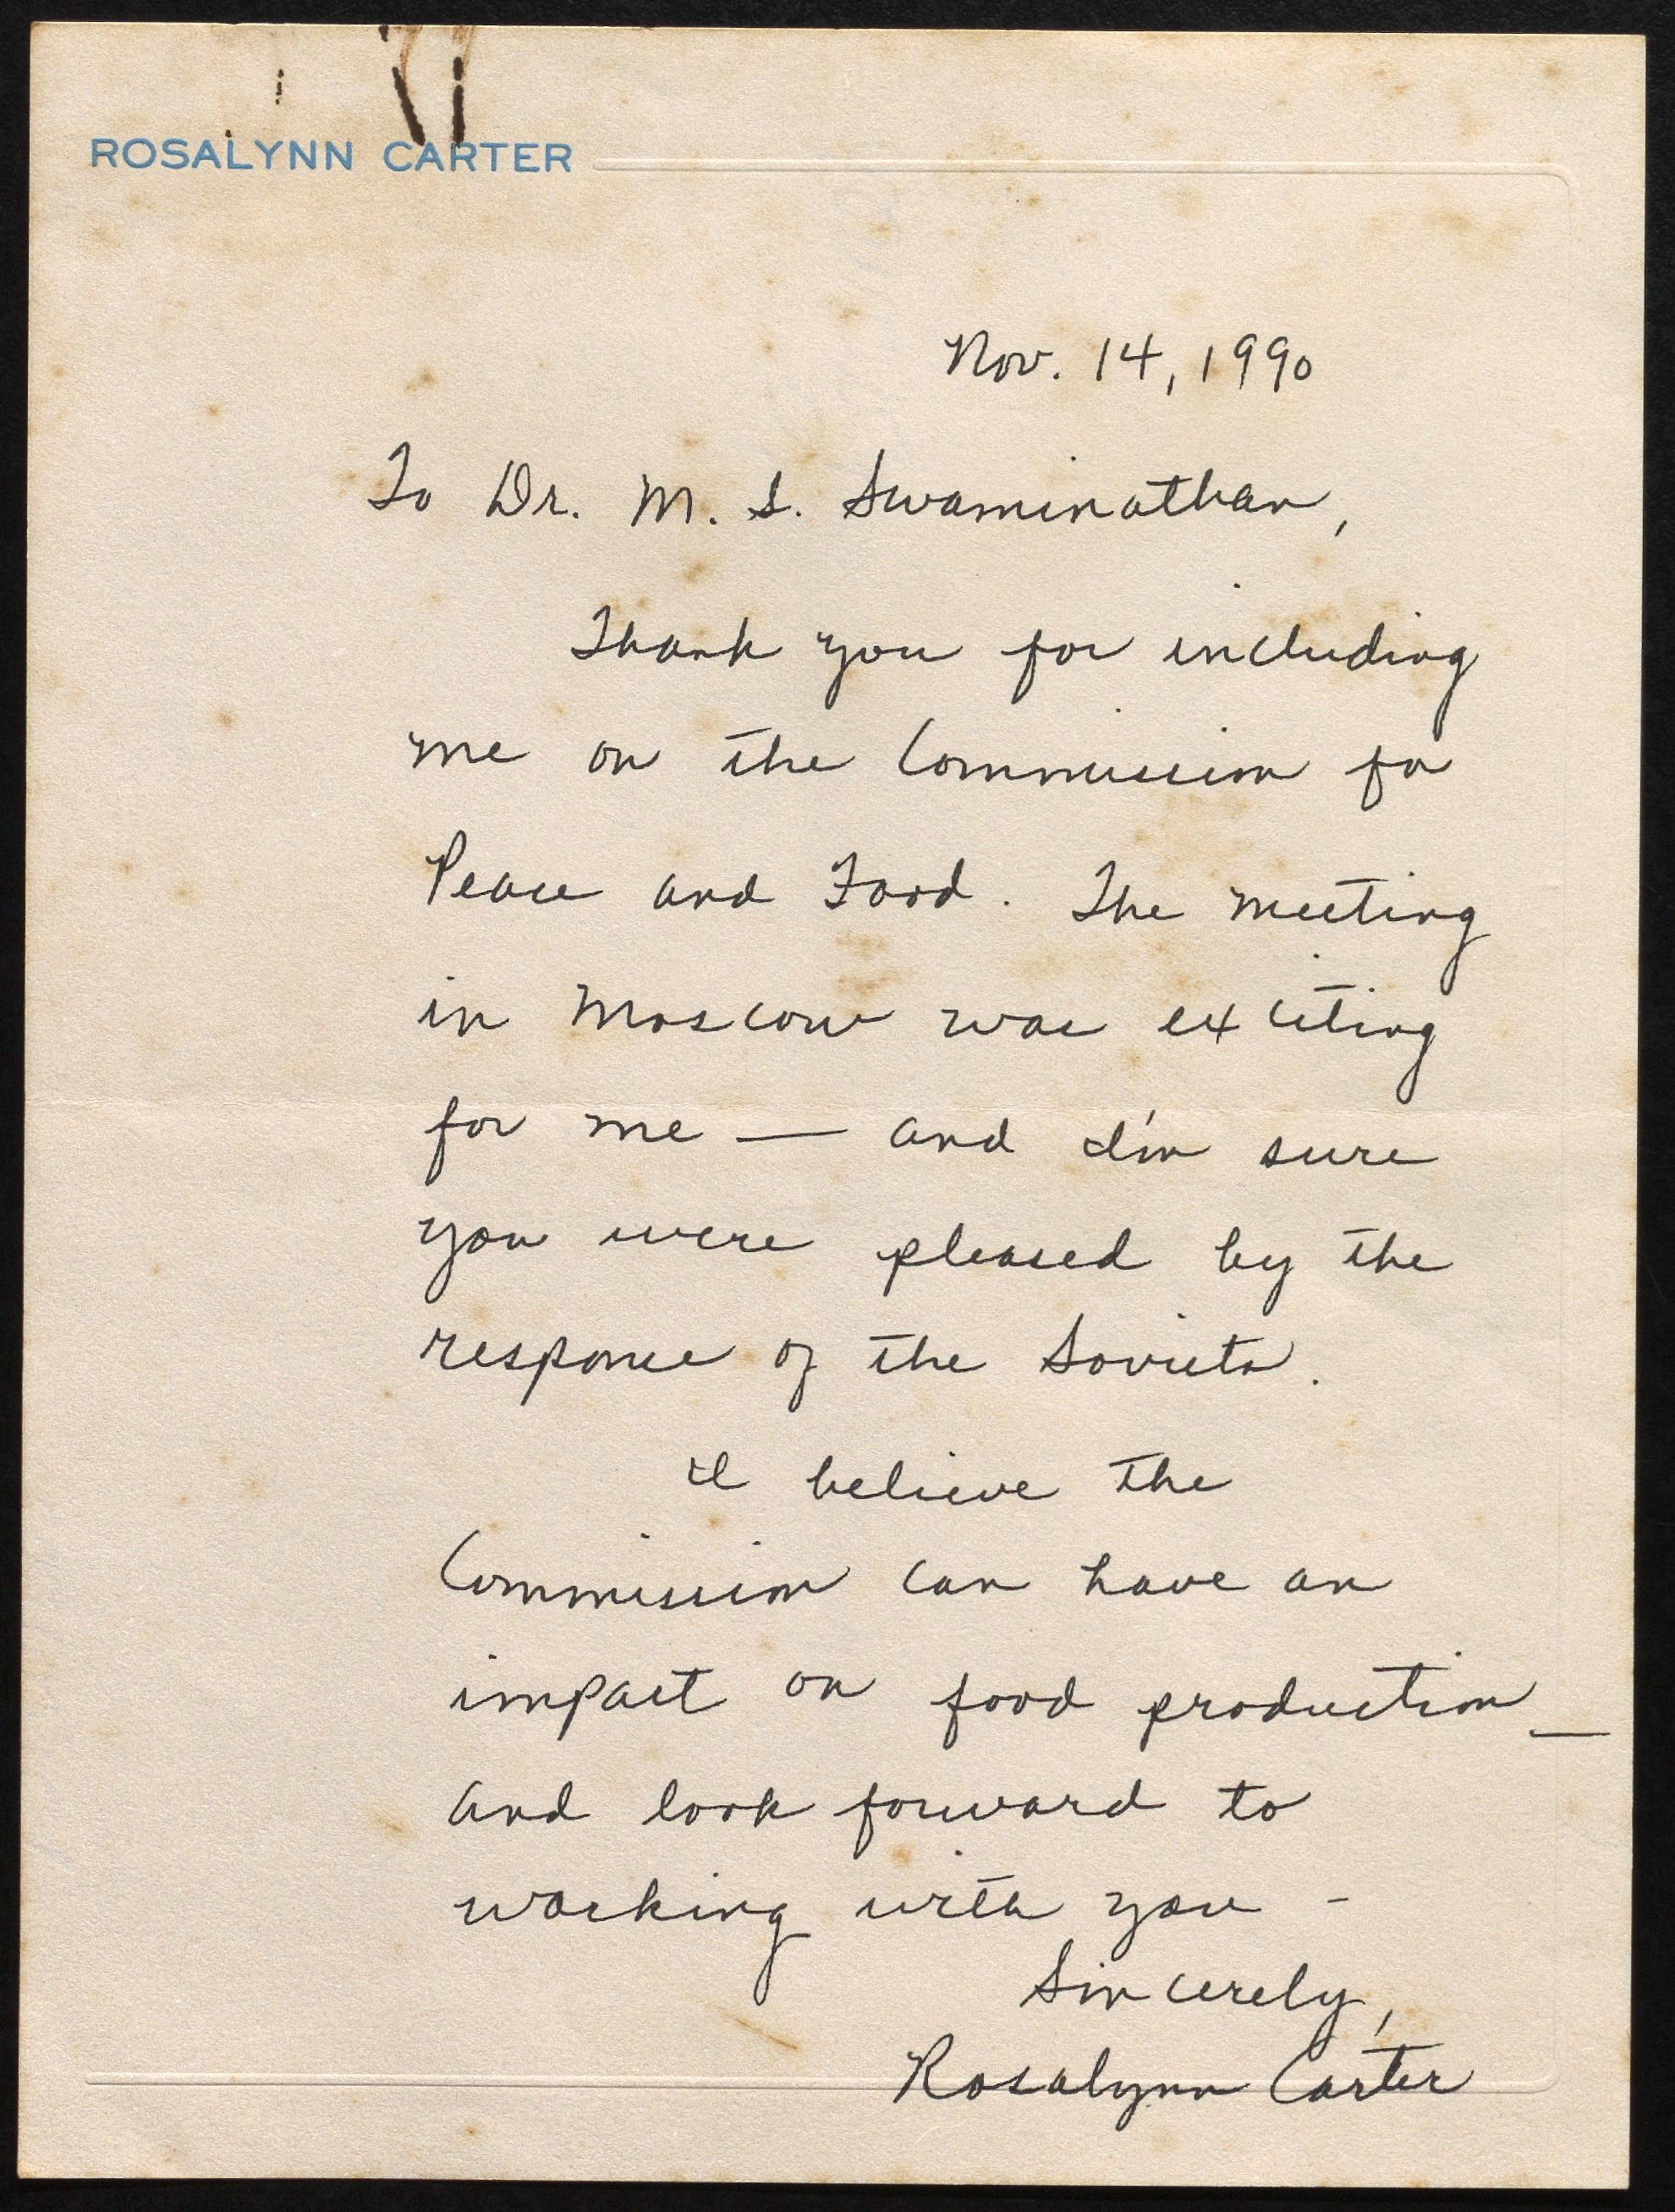 ROSALYNN CARTER
Nov. 14, 1990
To Dr. M. S. Swaminathan,
Thank you for including
me on the Commission for
Peace and Food. The meeting
in Moscow was exciting
for me — and I'm sure
you were pleased by the
response of the Soviets.
I believe the
Commission can have an
impact on food production —
and look forward to
working with you -
Sincerely,
Rosalynn Carter